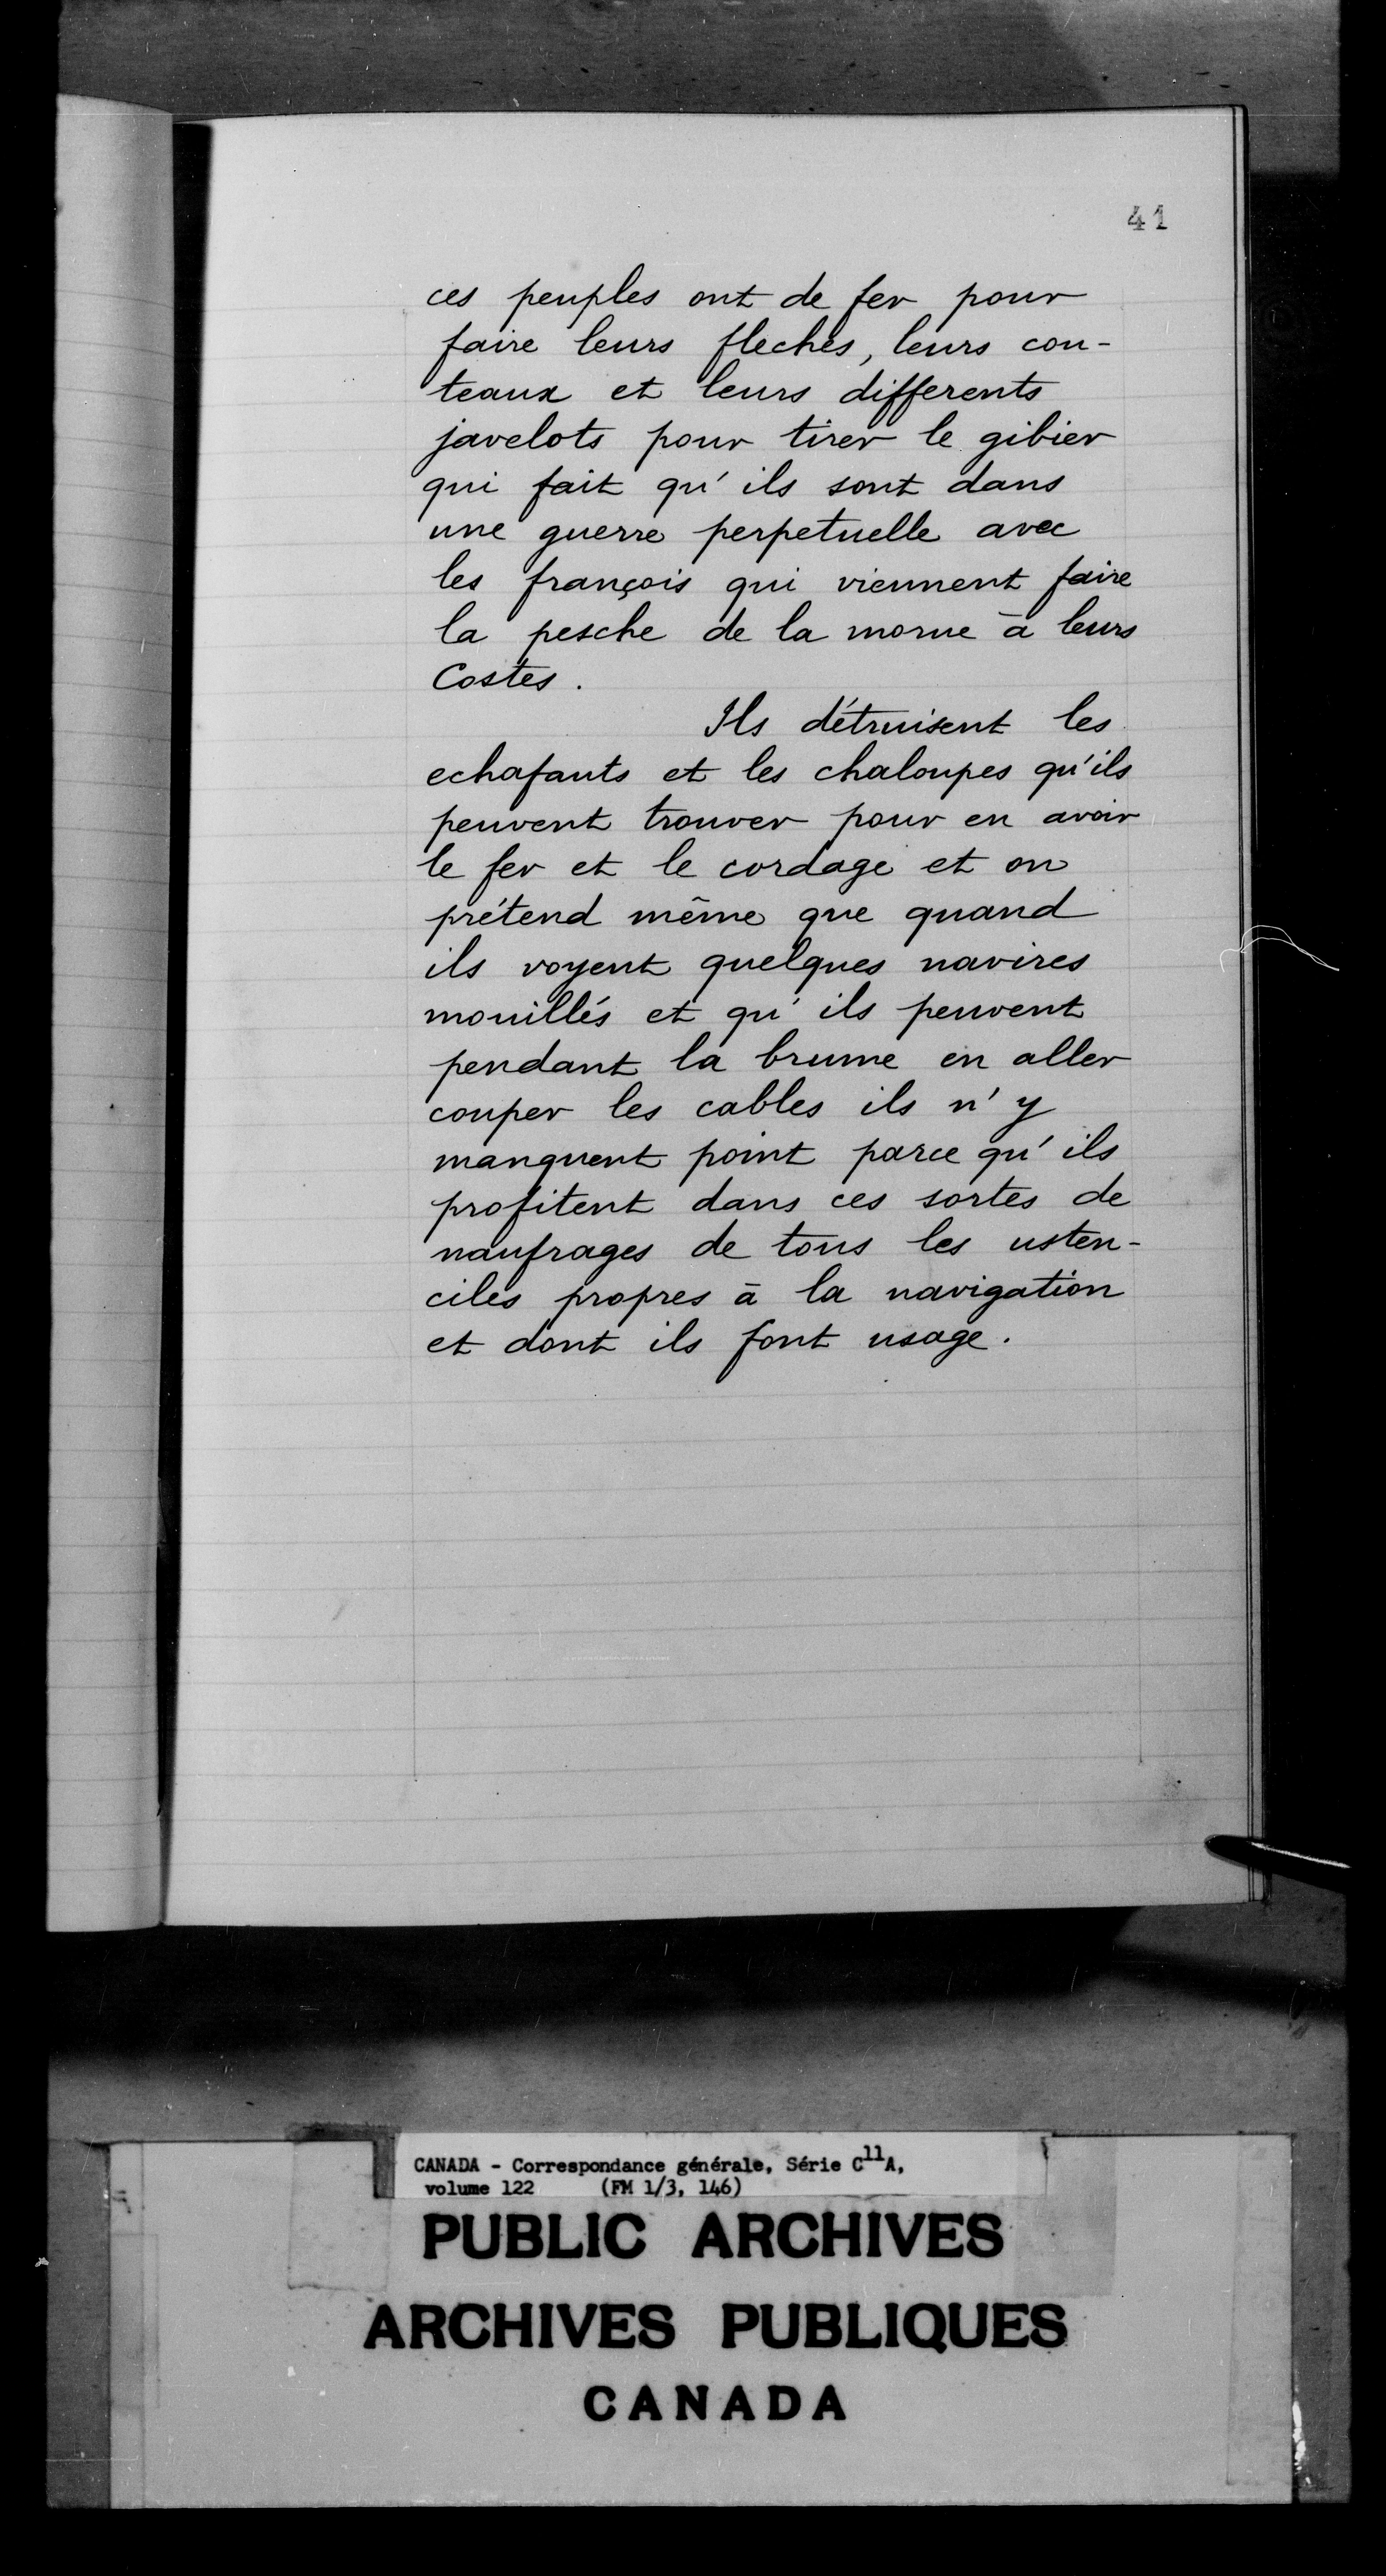 41
ces peuples ont de fer pour
faire leurs fleches, leurs cou-
teaux et leurs differents
javelots pour tirer le gibier
qui fait qu'ils sont dans
une guerre perpetuelle avec
les françois qui viennent faire
la pesche de la morue à leurs
Costes.
Ils détruisent les
echafauts et les chaloupes qu'ils
peuvent trouver pour en avoir
le fer et le cordage et on
prétend même que quand
ils voyent quelques navires
mouillés et qu'ils peuvent
pendant la brume en aller
couper les cables ils n'y
manquent point parce qu'ils
profitent dans ces sortes de
naufrages de tous les usten-
ciles propres à la navigation
et dont ils font usage.
CANADA - Correspondance générale, Série C11A,
volume 122 (FM 1/3, 146)
PUBLIC ARCHIVES
ARCHIVES PUBLIQUES
CANADA